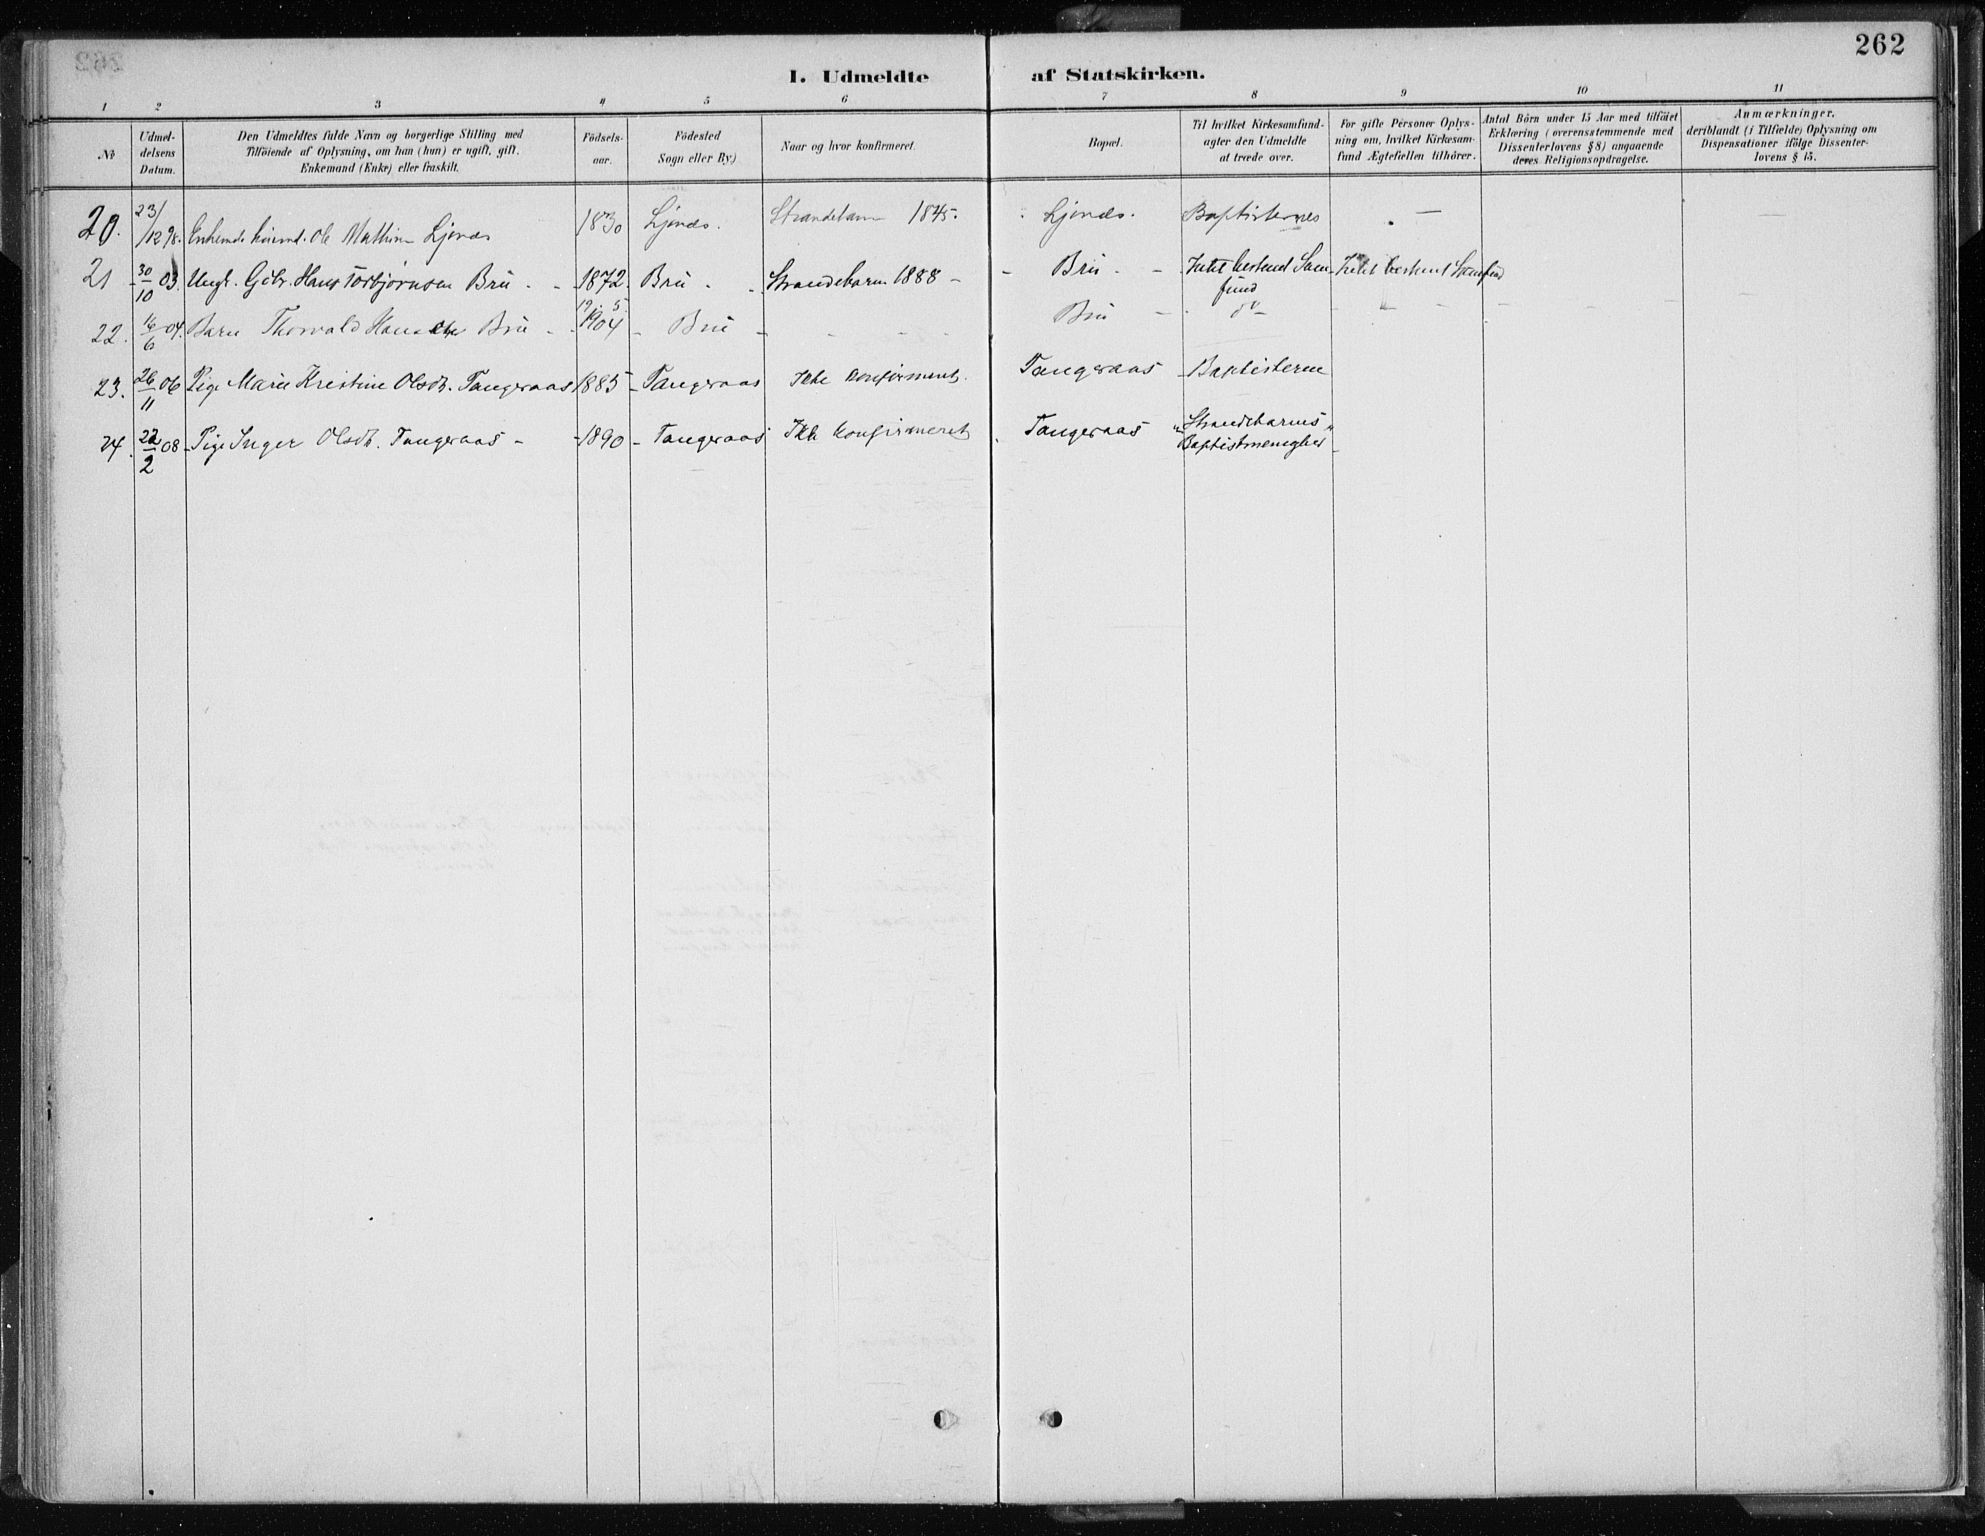 262
I. Udmeldte af Statskirken.
1 2 3 4 5 6 7 8 9 10 11
No
Udmel-
delsens
Datum.
Den Udmeldtes fulde Navn og borgerlige Stilling med
Tilföiende af Oplysning, om han (hun) er ugift, gift,
Enkemand (Enke) eller fraskilt.
Födsels-
aar.
Födested
Sogn eller By)
Naar og hvor konfirmeret.
Bopæl.
Til hvilket Kirkesamfund-
agter den Udmeldte
at træde over.
For gifte Personer Oplys-
ning om, hvilket Kirkesam-
fund Ægtefællen tilhörer.
Antal Börn under 15 Aar med tilföiet
Erklæring (overensstemmende med
Dissenterlovens § 8) angaaende
deres Religionsopdragelse.
Anmærkninger,
deriblandt (i Tilfælde) Oplysning om
Dispensationer ifölge Dissenter-
lovens § 15.
20. 23/12 98. Ole Ljonæs 1830 Ljonæs. Strandebarm 1845. Ljonæs. Baptisternes —
21 30/10 03. Ungk. Gbr. Hans Torbjørnsen Bru - 1872. Bru - Strandebarm 1888 - Bru - Intet bestemt Sam- Intet bestemt Samfund
fund
22. 16/6 04. Barn Thorvald Bru - 19/5 1904 - Bru - Bru - do -
23. 26/11 06 Pige Marie Kristine Olsdtr. Tangeraas 1885 - Tangeraas Ikke konfirmeret. Tangeraas - Baptisterne
24. 22/2 08 - Pige Inger Olsdtr. Tangeraas - 1890 - Tangeraas Ikke konfirmeret Tangeraas "Strandebarms
Baptistmenighed"